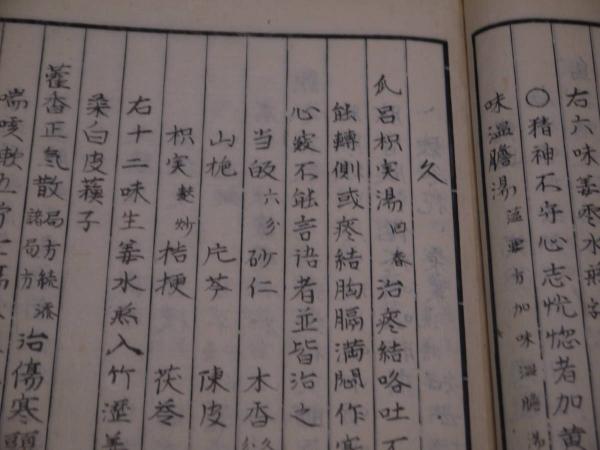 右六味姜棗水煎字
〇精神不守心志恍惚者加黄
味温膽湯温胆方加味温膽湯
久
瓜呂枳実湯回春治痰結咯吐不
能轉側或痰結胸膈満悶作寒
心竅不能言語者並皆治之
当皈六分砂仁木香
山梔片芩陳皮
枳実麩炒桔梗茯苓
右十二味生姜水煎入竹瀝姜
桑白皮蘇子
藿香正氣散局方続添諸局方治傷寒頭
喘咳嗽